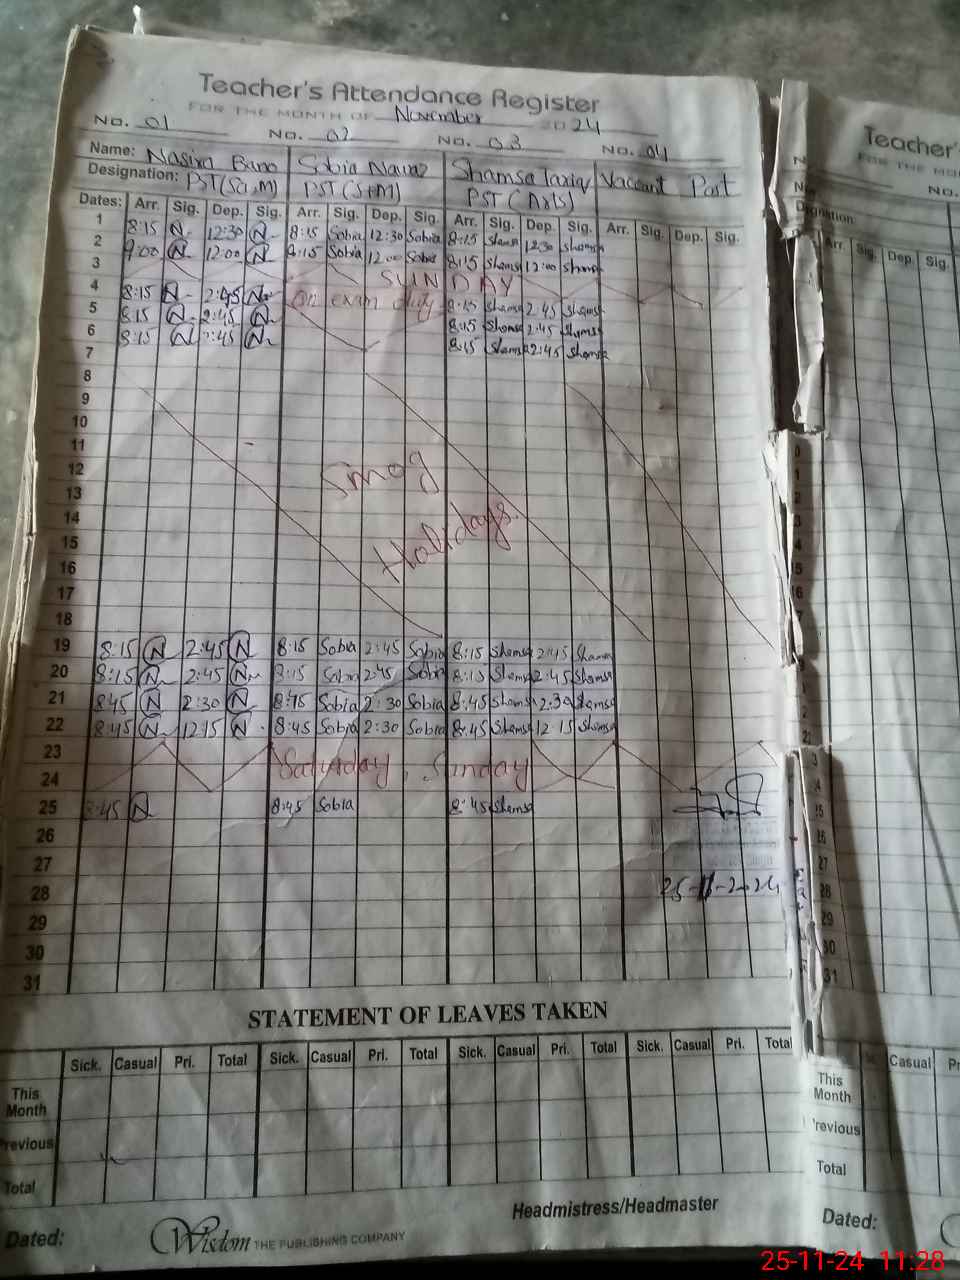 Teacher's Attendance Register
FOR THE MONTH OF November 2024
No. 01 No. 02 No. 03 No. 04
Name: Nasira Bano Sobia Nawaz Shamsa Tariq Vaccant Post
Designation: PST(Sci,M) PST(S+M) PST(Arts)
Dates: Arr. Sig. Dep. Sig. Arr. Sig. Dep. Sig. Arr. Sig. Dep. Sig. Arr. Sig. Dep. Sig.
1 8:15 N 12:30 N 8:15 Sobia 12:30 Sobia 8:15 Shamsa 12:30 Shamsa
2 9:00 N 12:00 N 8:15 Sobia 12:00 Sobia 8:15 Shamsa 12:00 Shamsa
3 SUNDAY
4 8:15 N 2:45 N On exam duty 8:15 Shamsa 2:45 Shamsa
5 8:15 N 2:45 N 8:15 Shamsa 2:45 Shamsa
6 8:15 N 2:45 N 8:15 Shamsa 2:45 Shamsa
7
8
9
10
11
12 Smog
13
14
15 Holidays.
16
17
18
19 8:15 N 2:45 N 8:15 Sobia 2:45 Sobia 8:15 Shamsa 2:45 Shamsa
20 8:15 N 2:45 N 8:15 Sobia 2:45 Sobia 8:15 Shamsa 2:45 Shamsa
21 8:45 N 2:30 N 8:45 Sobia 2:30 Sobia 8:45 Shamsa 2:30 Shamsa
22 8:45 N 12:15 N 8:45 Sobia 2:30 Sobia 8:45 Shamsa 12:15 Shamsa
23 Saturday, Sunday
24
25 8:45 N 8:45 Sobia 8:45 Shamsa
26
27
28 25-11-2024
29
30
31
STATEMENT OF LEAVES TAKEN
Sick. Casual Pri. Total Sick. Casual Pri. Total Sick. Casual Pri. Total Sick. Casual Pri. Total
This Month
Previous
Total
Headmistress/Headmaster
Dated: Wisdom THE PUBLISHING COMPANY
Teacher's
FOR THE MO
No.
Arr. Sig. Dep. Sig.
27
28
29
30
31
Casual
This Month
Previous
Total
Dated:
25-11-24 11:28